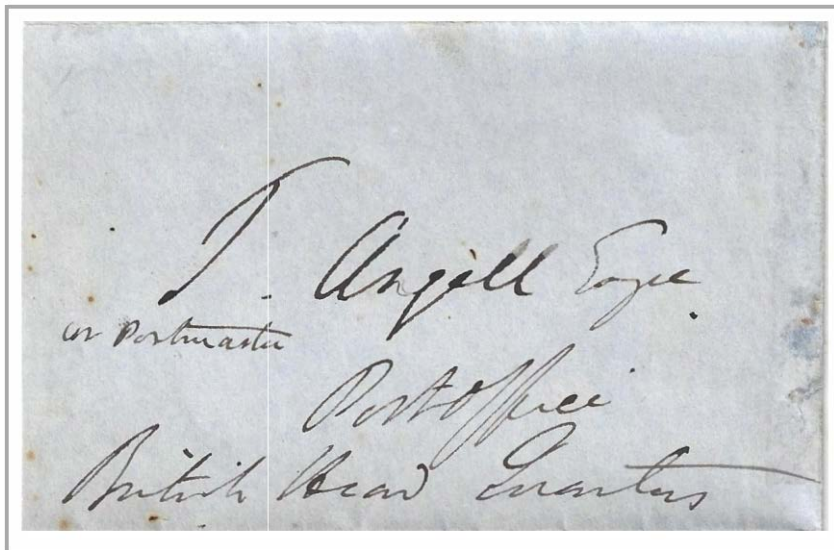 J. Angell Esqre
or Postmaster
Post Office
British Head Quarters